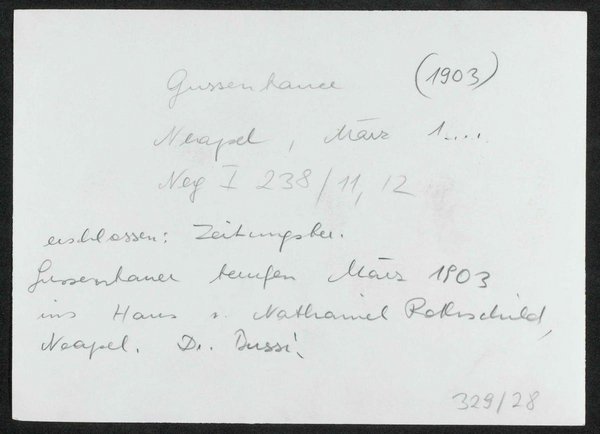 Gussenbauer (1903)
Neapel, März 1....
Neg I 238/11, 12
erschlossen: Zeitungsber.
Gussenbauer berufen März 1903
ins Haus v. Nathaniel Rothschild,
Neapel. Dr.
329/28